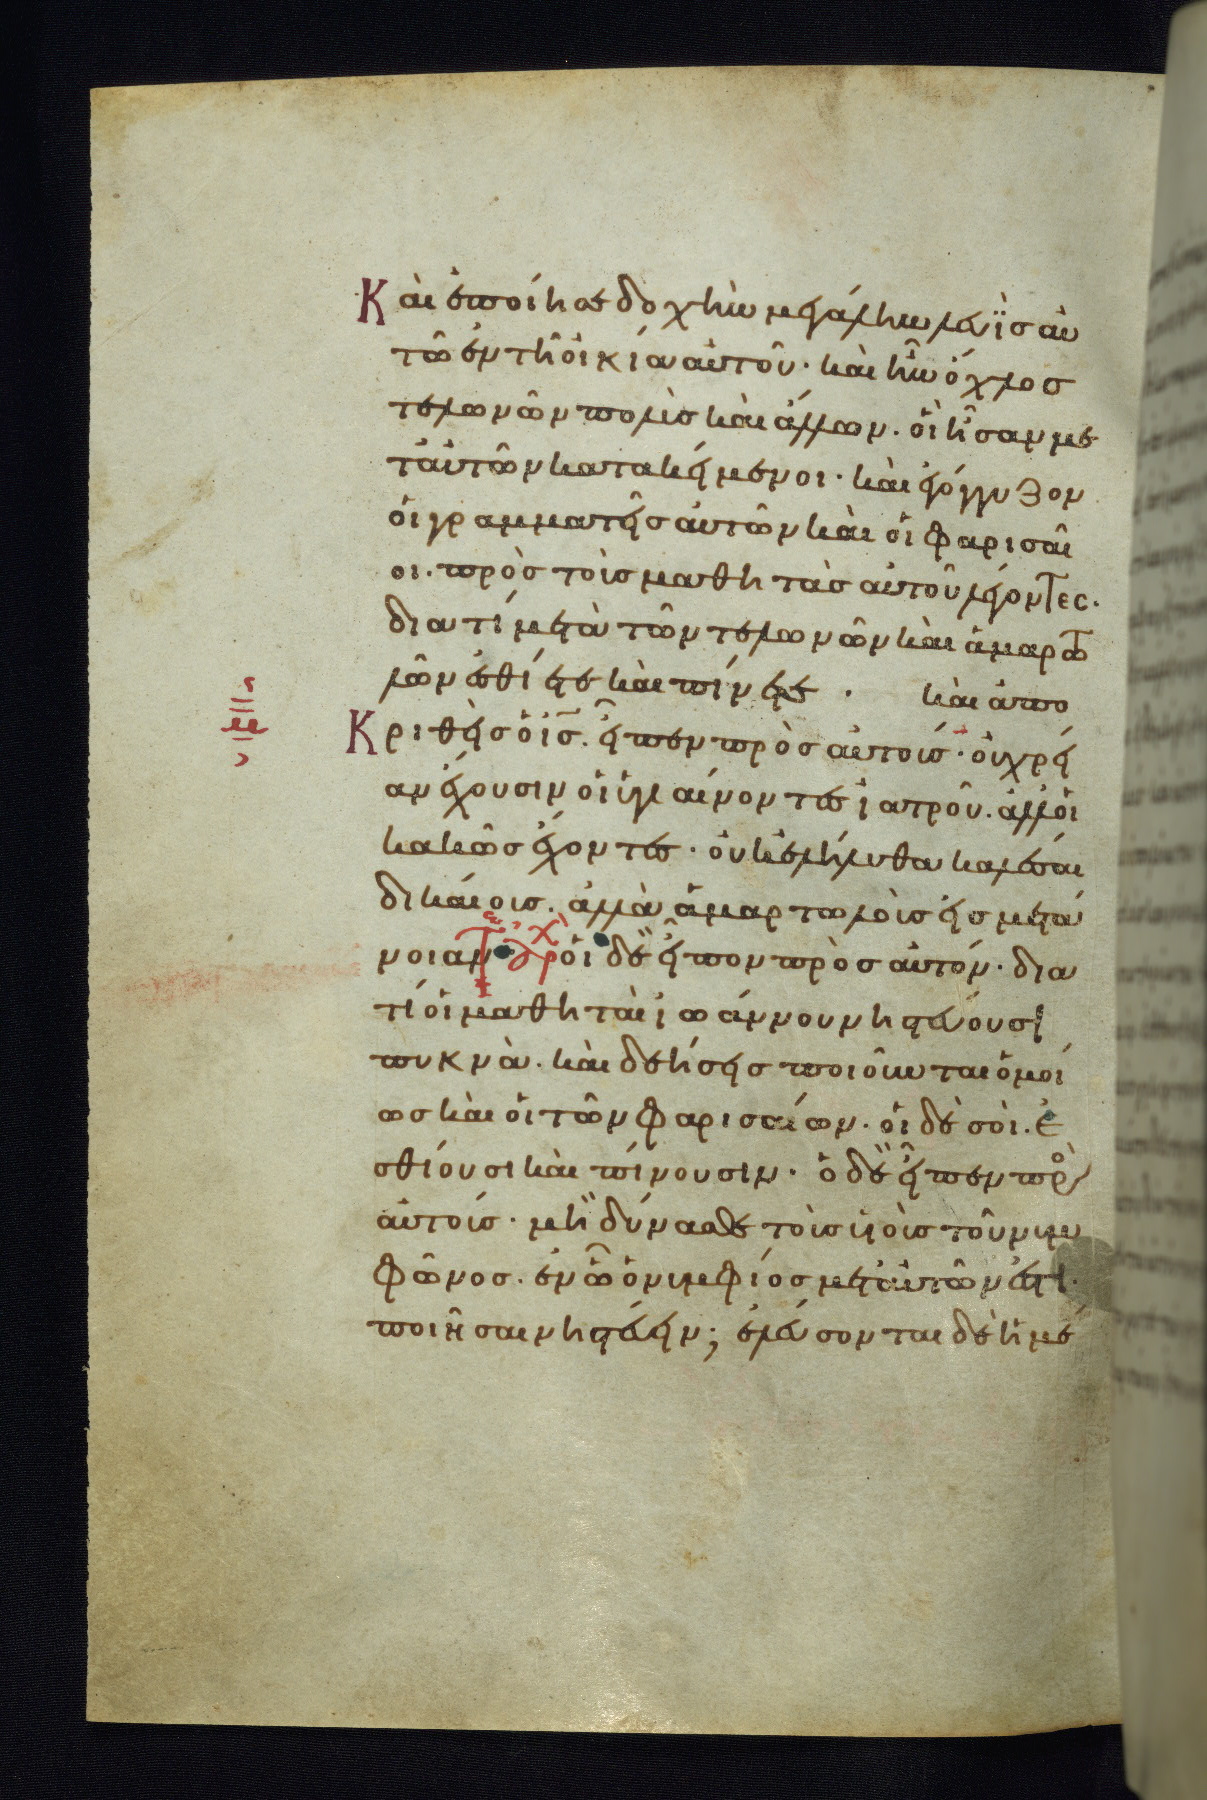 Καὶ ἐποίησε δοχὴν μεγάλην λευϊσ αὐ
τῶ ἐν τῆ οἰκία αὐτοῦ· καὶ ἦν ὄχλοσ
τελωνῶν πολὺσ καὶ ἄλλων. οἳ ἦσαν με
τ᾽αὐτῶν κατακείμενοι· καὶ ἐγόγγυζον
οἱ γραμματεῖσ αὐτῶν καὶ οἱ φαρισαῖ
οι. πρὸσ τοὺσ μαθητὰσ αὐτοῦ λέγοντες.
διατί μετὰ τῶν τελωνῶν καὶ ἁμαρτω
λῶν ἐσθίετε καὶ πίνετε · καὶ ἀπο
Κριθεὶσ ὁ ἰσ. εἶπεν πρὸσ αὐτούσ· οὐ χρεί
αν ἔχουσιν οἱ ὑγιαίνοντεσ ἰατροῦ. ἀλλ᾽οἱ
κακῶσ ἔχοντεσ· οὐκ ἐλήλυθα καλέσαι
δικαίουσ. ἀλλὰ ἁμαρτωλοὺσ εἰσ μετά
νοιαν· οἱ δὲ εἶπον πρὸσ αὐτόν· δια
τί οἱ μαθηταὶ ἰωάννου νηστεύουσι
πυκνὰ. καὶ δεήσεισ ποιοῦνται ὁμοί
ωσ καὶ οἱ τῶν φαρισαίων. οἱ δὲ σοὶ. ἐ
σθίουσι καὶ πίνουσιν· ὁ δὲ εἶπεν πρὸ
αὐτούσ· μὴ δύνασθε τοὺσ υἱοὺσ τοῦ νυμ
φῶνοσ. ἐν ῶ ὁ νυμφίοσ μετ᾽αὐτῶν ἐστι.
ποιῆσαι νηστεύειν; ἐλεύσονται δὲ ἡμέ